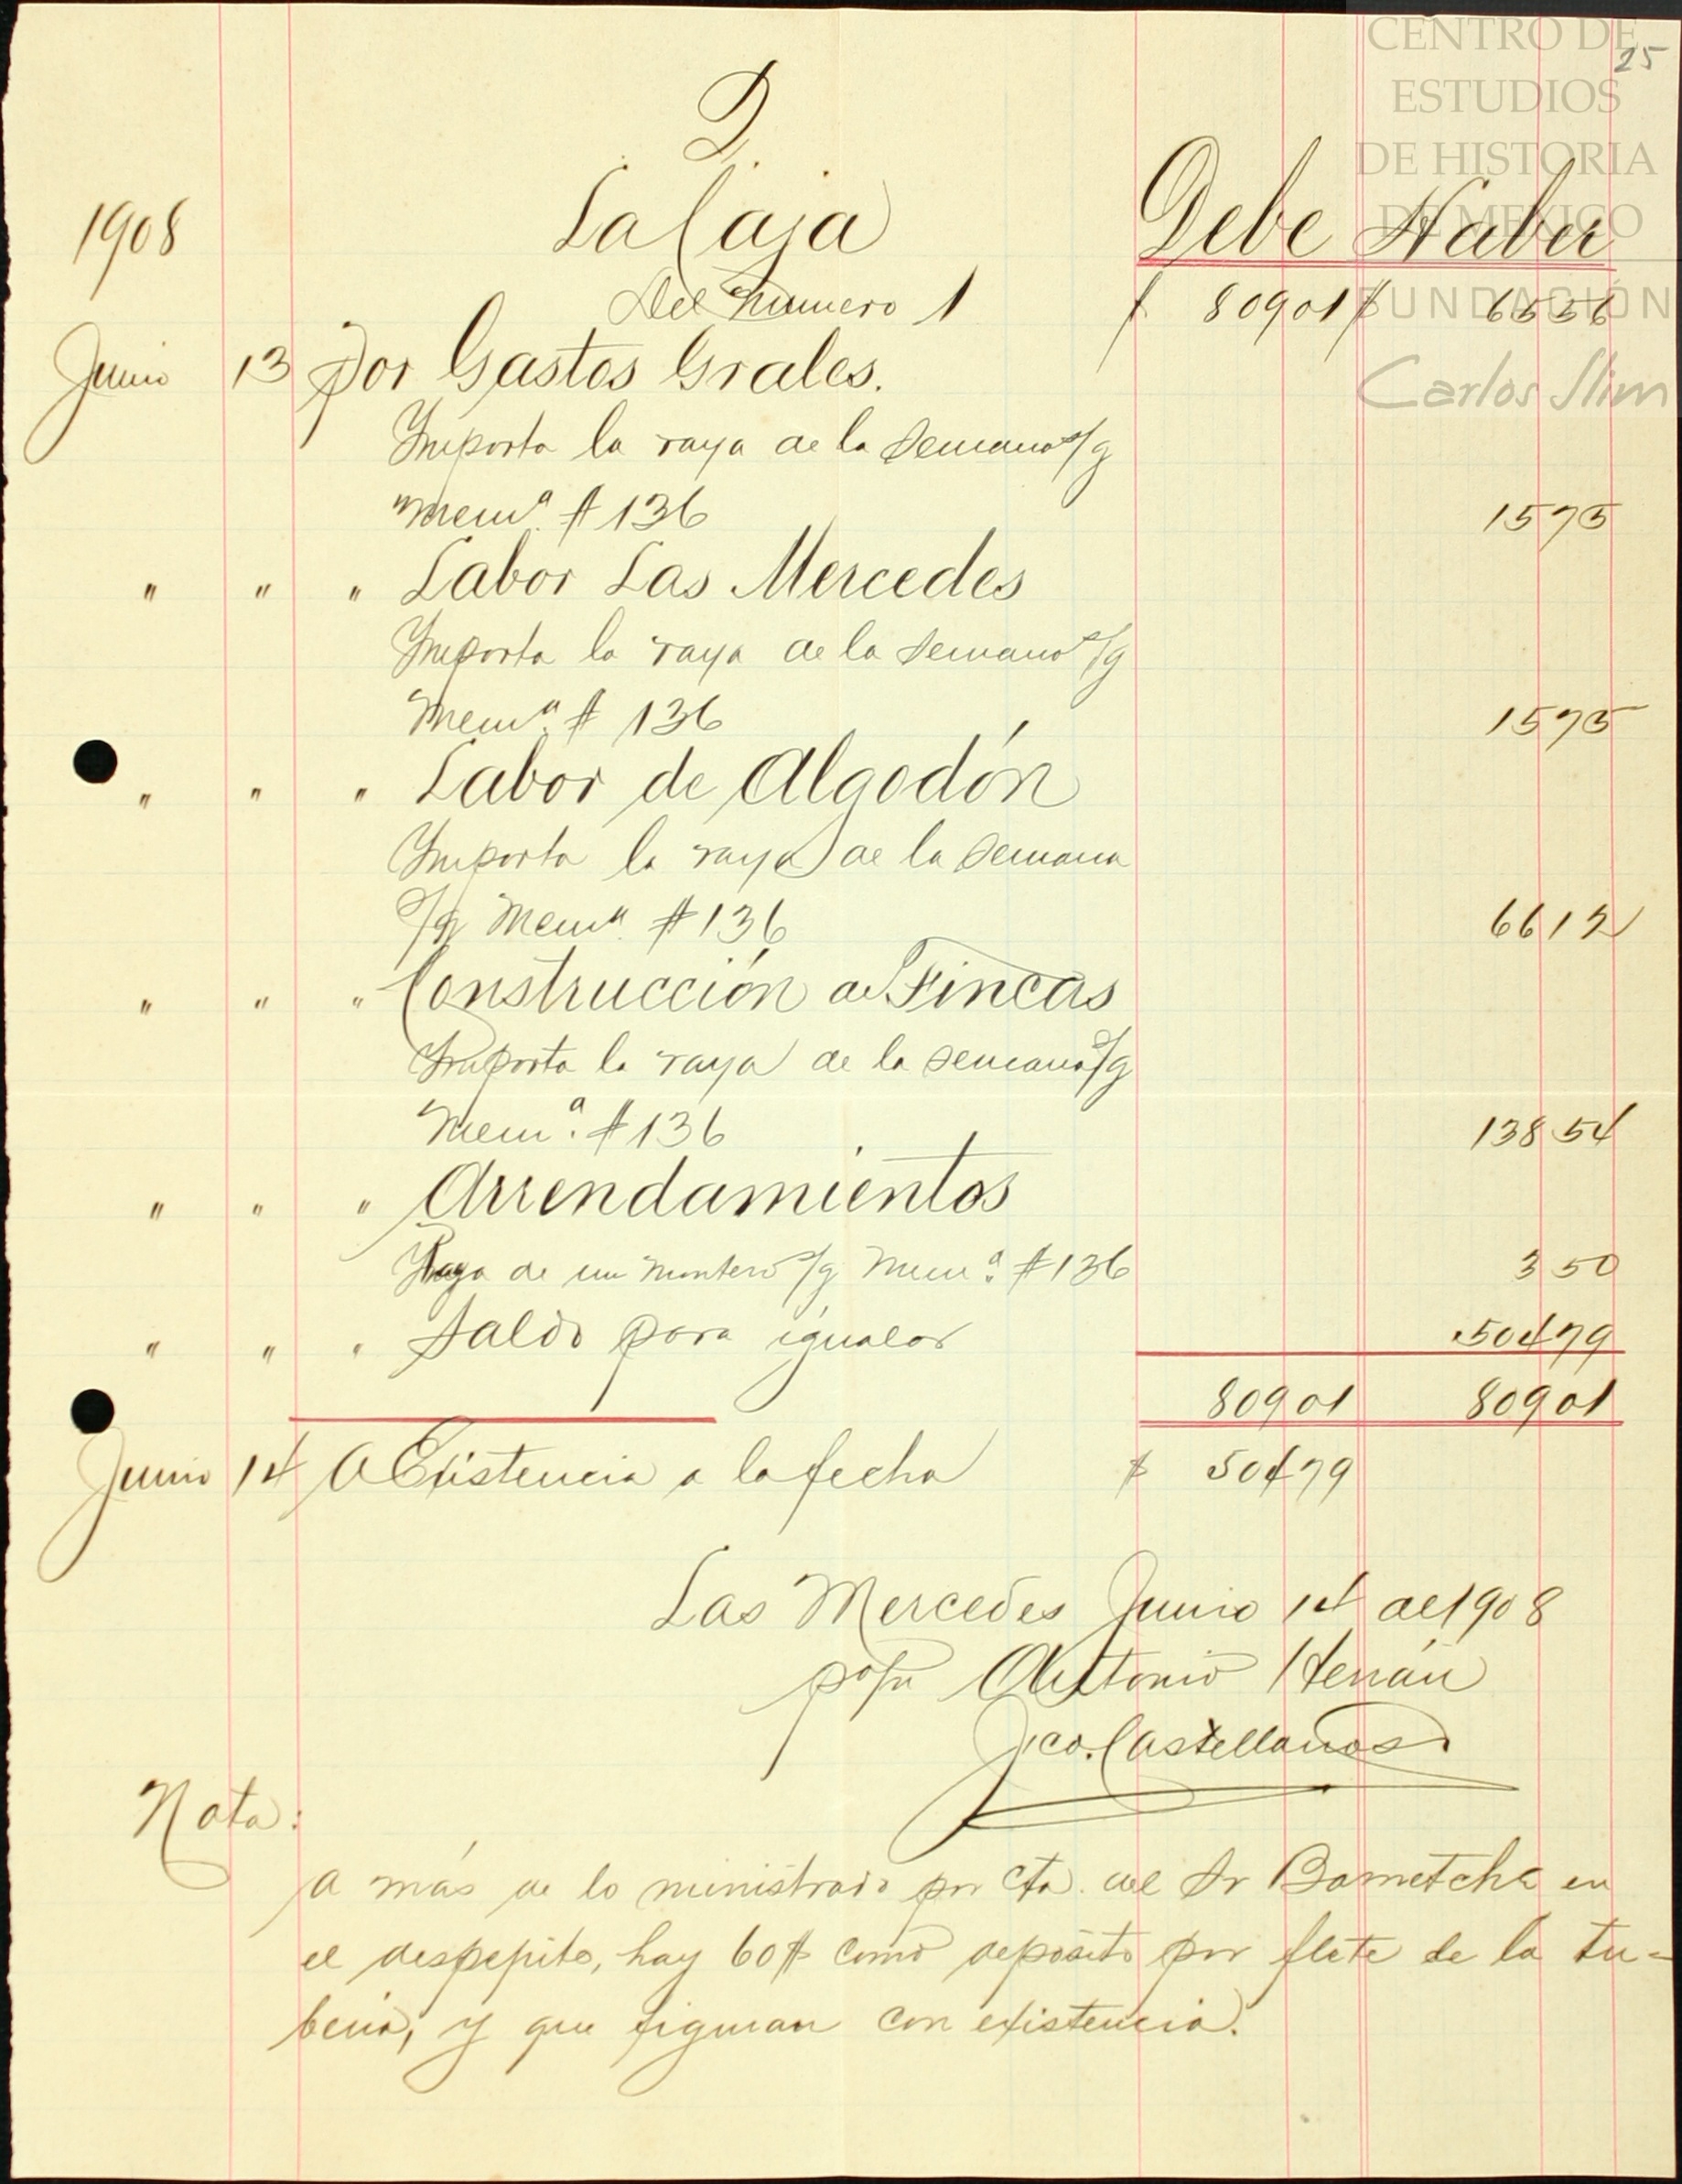 25
CENTRO DE
ESTUDIOS
DE HISTORIA
DE MEXICO
FUNDACIÓN
Carlos Slim
2
1908 La Caja Debe Haber
Del Numero 1 $ 809 01 $
Junio 13 Por Gastos Grales.
Importa la raya de la semana s/g
Mem.ª # 136 15 75
" " " Labor Las Mercedes
Importa la raya de la semana s/g
Mem.ª # 136 15 75
" " " Labor de Algodón
Importa la raya de la semana
s/g Mem.ª # 136 66 12
" " " Construcción de Fincas
Importa la raya de la semana s/g
Mem.ª # 136 138 54
" " " Arrendamientos
Raya de un montero s/g Mem.ª # 136 3 50
" " " Saldo para igualar 504 79
809 01 809 01
Junio 14 A Existencia a la fecha $ 504 79
Las Mercedes Junio 14 de 1908
Antonio Herrán
Fco. Castellanos
Nota:
A más de lo ministrado por cta. del Sr Barnetche en
el despepite, hay 60$ como deposito por flete de la tu-
beria, y que figuran con existencia.